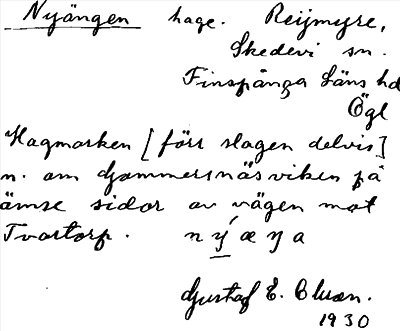 Nyängen hage. Reijmyre,
Skedevi sn.
Finspånga läns hd
Ögl
Hagmarken [förr slagen delvis]
n. om Gjammersnäsviken på
ömse sidor av vägen mot
Tvartorp. nýæŋa
Gustaf E.
1930